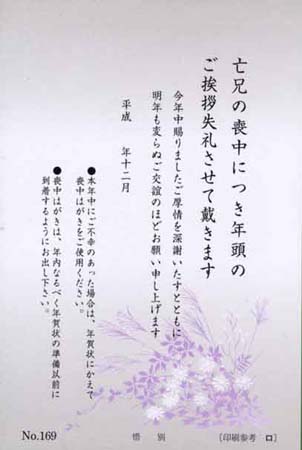 亡兄の喪中につき年頭の
ご挨拶失礼させて戴きます
今年中賜りましたご厚情を深謝いたすとともに
明年も変らぬご交誼のほどお願い申し上げます
平成　年十二月
●本年中にご不幸のあった場合は、年賀状にかえて
喪中はがきをご使用ください。
●喪中はがきは、年内なるべく年賀状の準備以前に
到着するようにお出し下さい。
No.169
惜別
〔印刷参考 ロ〕